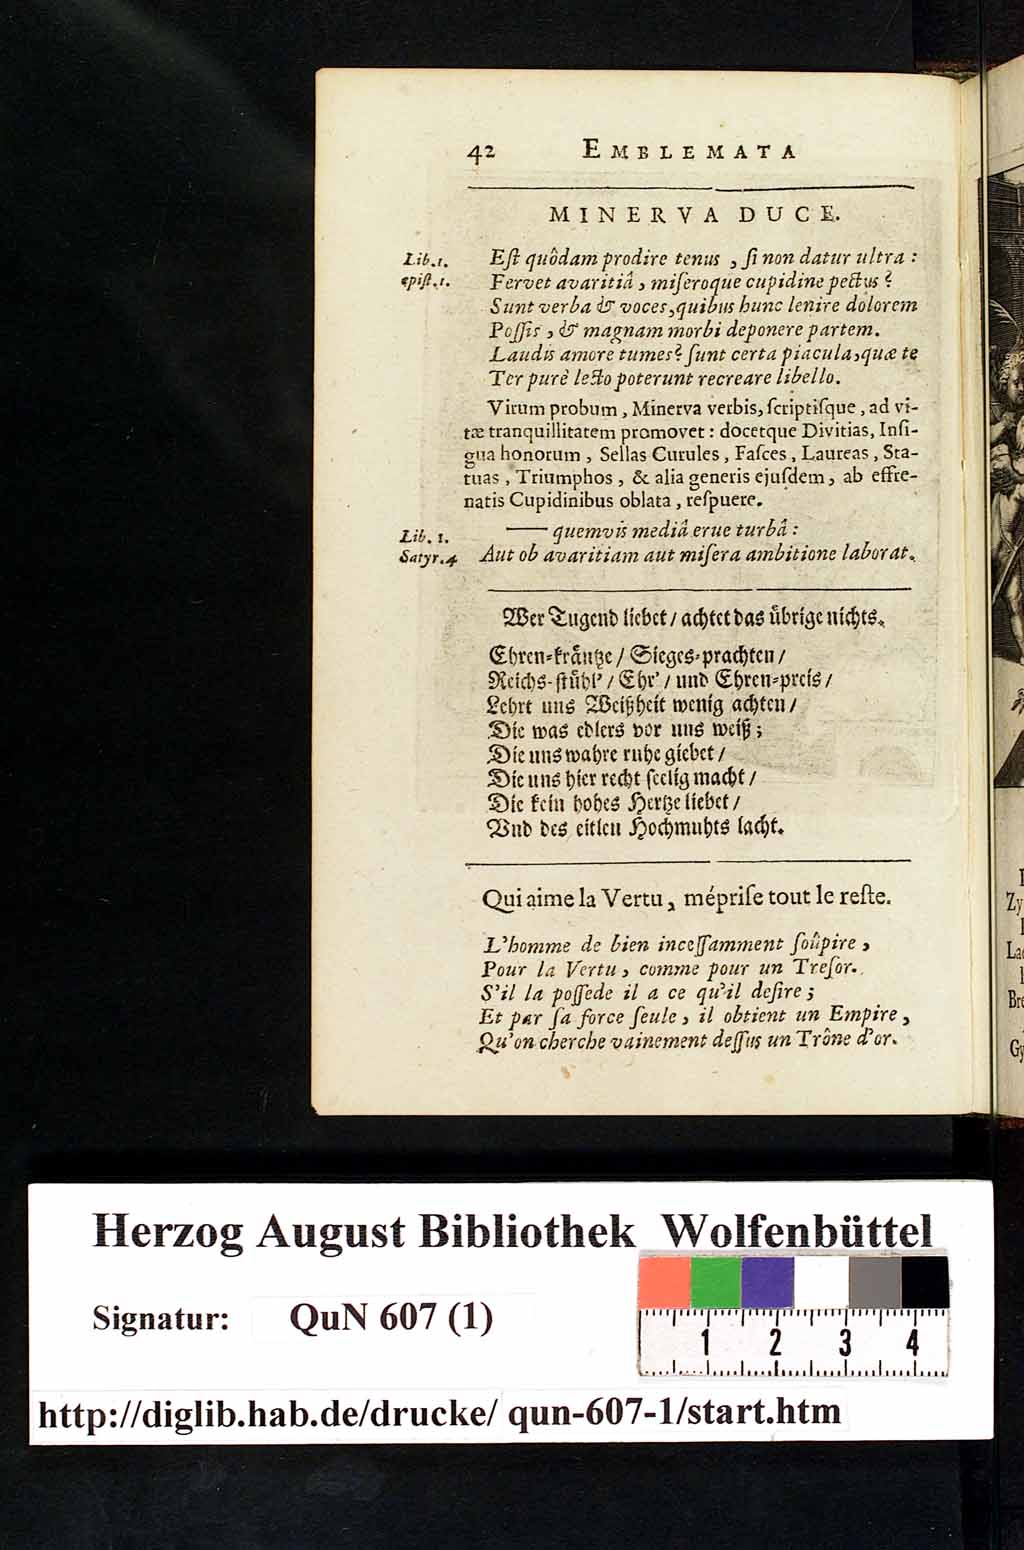 42 EMBLEMATA
MINERVA DUCE.
Lib. 1. Eſt quôdam prodire tenus, ſi non datur ultra:
epiſt. 1. Fervet avaritiâ, miſeroque cupidine pectus?
Sunt verba & voces, quibus hunc lenire dolorem
Poſſis, & magnam morbi deponere partem.
Laudis amore tumes? ſunt certa piacula, quæ te
Ter purè lecto poterunt recreare libello.
Virum probum, Minerva verbis, ſcriptiſque, ad vi-
tæ tranquillitatem promovet: docetque Divitias, Inſi-
gua honorum, Sellas Curules, Faſces, Laureas, Sta-
tuas, Triumphos, & alia generis ejuſdem, ab effre-
natis Cupidinibus oblata, reſpuere.
Lib. 1. —— quemvis mediâ erue turbâ:
Satyr. 4 Aut ob avaritiam aut miſera ambitione laborat.
Wer Tugend liebet / achtet das übrige nichts.
Ehren-kräntze / Sieges-prachten /
Reichs-ſtühl' / Ehr' / und Ehren-preis /
Lehrt uns Weißheit wenig achten /
Die was edlers vor uns weiß;
Die uns wahre ruhe giebet /
Die uns hier recht ſeelig macht /
Die kein hohes Hertze liebet /
Vnd des eitlen Hochmuhts lacht.
Qui aime la Vertu, mépriſe tout le reſte.
L'homme de bien inceſſamment ſoûpire,
Pour la Vertu, comme pour un Treſor.
S'il la poſſede il a ce qu'il deſire;
Et par ſa force ſeule, il obtient un Empire,
Qu'on cherche vainement deſſus un Trône d'or.
Zy
Lac
Bre
Gy
Herzog August Bibliothek Wolfenbüttel
Signatur: QuN 607 (1)
1 2 3 4
http://diglib.hab.de/drucke/ qun-607-1/start.htm